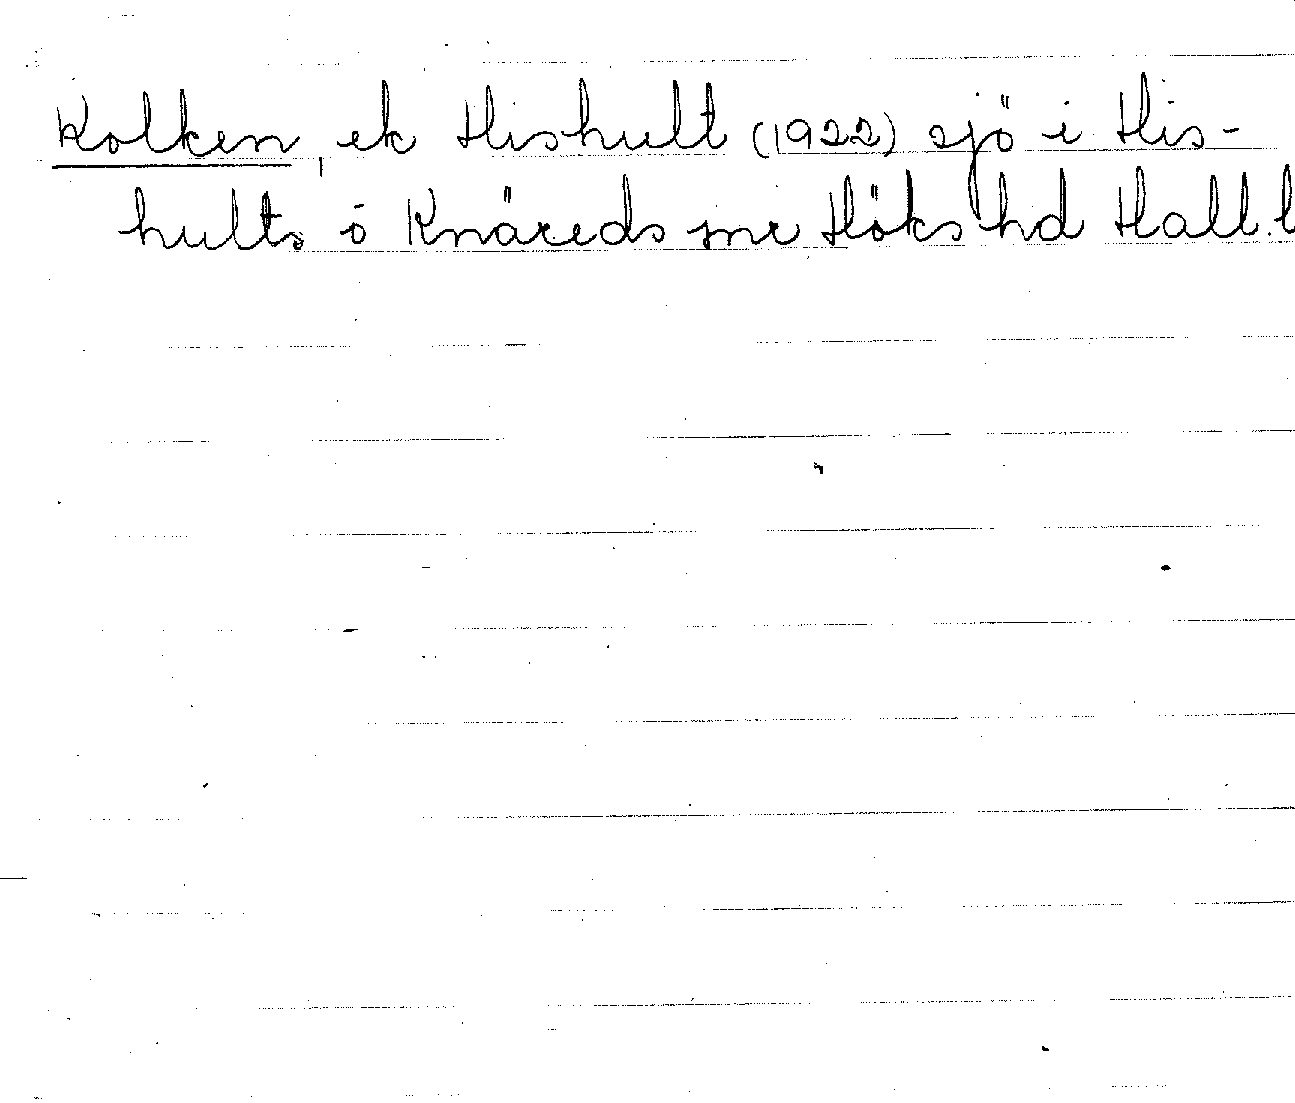 Kolken, ek Hishult (1922) sjö i His-
hults o Knäreds snr Höks hd Hall. l